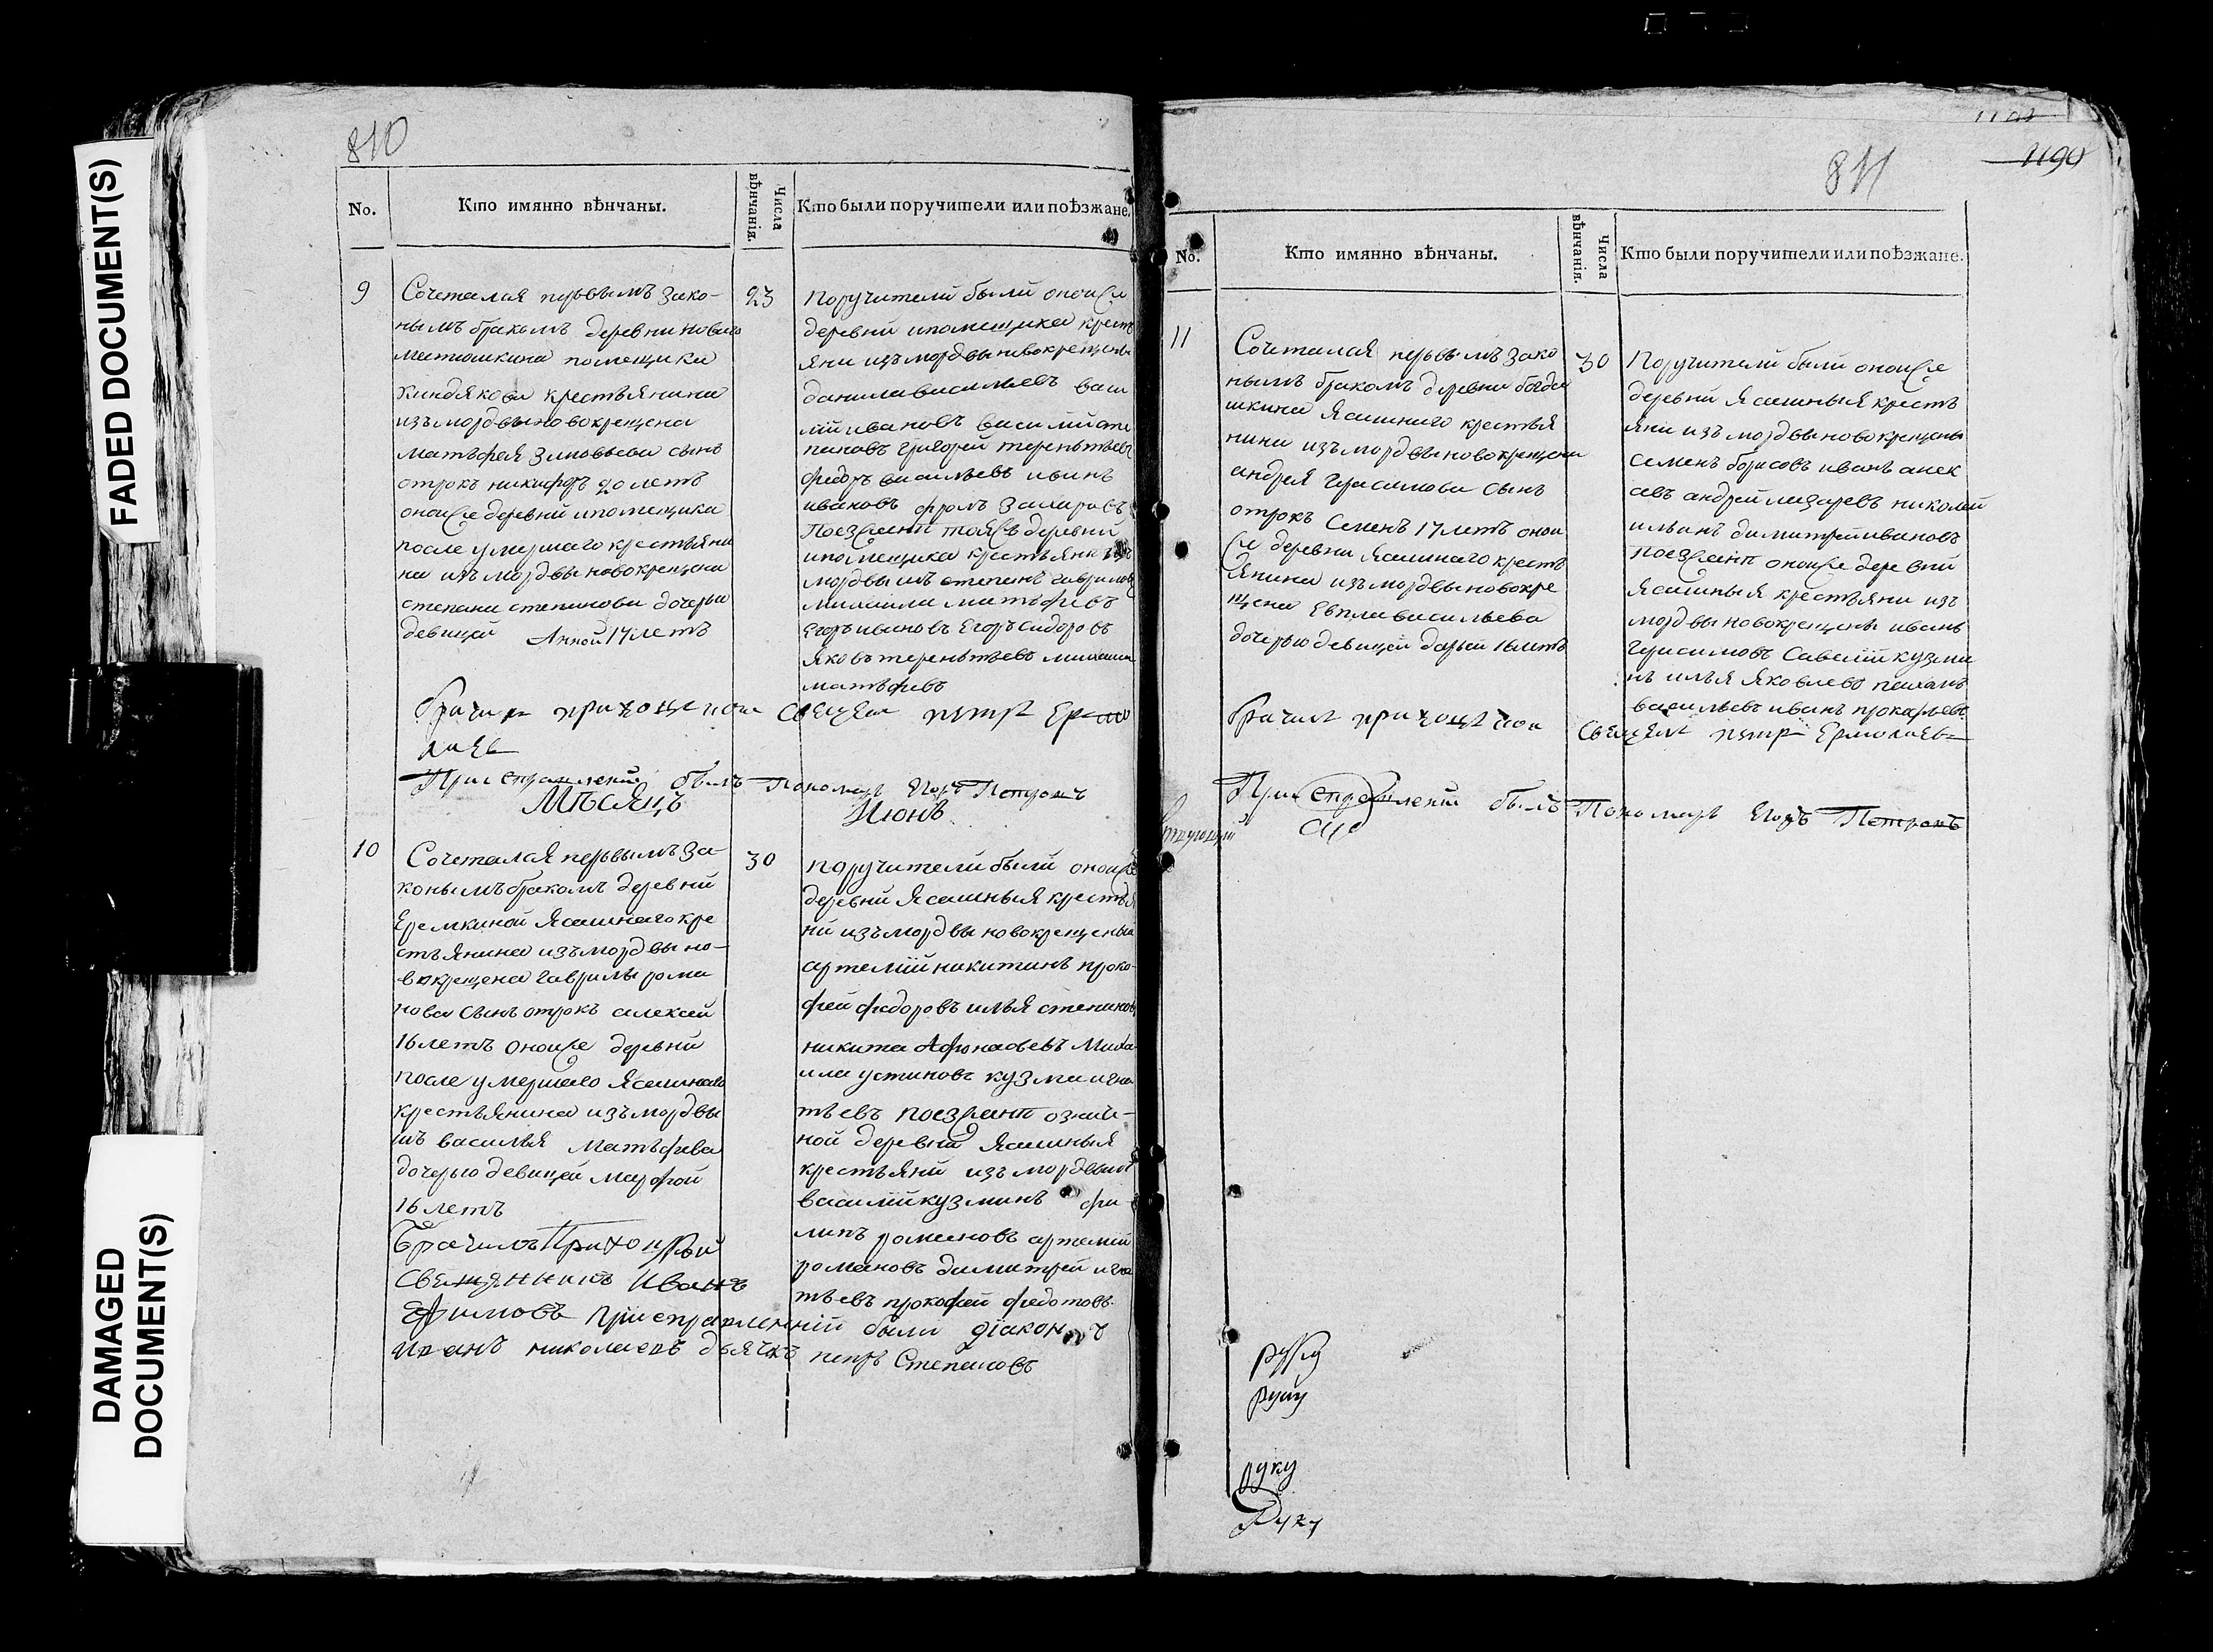 FADED DOCUMENT(S)
DAMAGED
DOCUMENT(S)
810
No.
Кто имянно вѣнчаны.
Числа
вѣнчанія.
Кто были поручители или поѣзжане.
9
Сочетался первымъ зако-
нымъ бракомъ деревни новаго
матюшкина помещика
Киндякова крестьянина
изъ мордвы новокрещена
матьфея зиновьева сынъ
отрокъ никифоръ 20 летъ
оноиже деревни ипомещика
после умершаго крестьяни
на изъ мордвы новокрещена
степана степанова дочерью
девицей Анной 17 летъ
23
поручители были оноиже
деревни ипомещика кресть
яни изъ мордвы новокрещены
данила васильевъ васи
лій ивановъ василий сте
пановъ григорей тереньтьевъ
федоръ васильевъ иванъ
ивановъ фролъ захаровъ
Поезжаня тояжъ деревни
ипомещика крестьяни изъ
мордвы изъ степанъ гавриловъ
михаила матьфиевъ
Егоръ ивановъ Егоръ сидоровъ
Яковъ тереньтьевъ михаила
матьфиевъ
петръ Ермо
лаевъ
При справлении былъ Пономарь Егоръ Петровъ
Мѣсяцъ
Июнь
10
Сочетался первымъ за-
конымъ бракомъ деревни
Еремкиной Ясашнаго кре
стьянина изъ мордвы но-
вокрещена гаврилы рома
нова сынъ отрокъ алексей
16 летъ оноиже деревни
после умершаго Ясашнаго
крестьянина изъ мордвы
изъ василья Матьфиева
дочерью девицей марфой
16 летъ
30
поручители были оноиже
деревни Ясашныя крестья
ни изъ мордвы новокрещеныя
артемій никитинъ проко-
фей федоровъ илья степановъ
никита Афонасьевъ Миха-
ила устиновъ кузма игна
тьевъ поезжаня означе-
ной деревни Ясашныя
крестьяни изъ мордвы
василій кузминъ фи-
липъ романовъ артемій
романовъ димитрей игна
тьевъ прокофей федотовъ
Брачилъ Приходской
Священникъ Иванъ
Ефимовъ При справлении были діаконъ
Иванъ николаевъ дьячекъ петръ Степановъ
811
1190
No.
Кто имянно вѣнчаны.
Числа
вѣнчанія.
Кто были поручители или поѣзжане.
11
Сочетался первымъ зако
нымъ бракомъ деревни богда
шкина Ясашнаго крестья
нина изъ мордвы новокрещена
андрея герасимова сынъ
отрокъ Семенъ 17 летъ онои
же деревни Ясашнаго кресть
янина изъ мордвы новокре
щена Евпла васильева
дочерью девицей дарьей 16 летъ
30
Поручители были оноиже
деревни Ясашныя кресть
яни изъ мордвы новокрещены
семенъ борисовъ иванъ алек
авъ андрей лазаревъ николай
ильинъ димитрей ивановъ
поезжаня оноиже деревни
Ясашныя крестьяни изъ
мордвы новокрещены иванъ
герасимовъ Савелій кузми
нъ илья Яковлевъ
васильевъ иванъ прокофьевъ
петръ Ермолаевъ
При справлении былъ Пономарь Егоръ Петровъ
руку